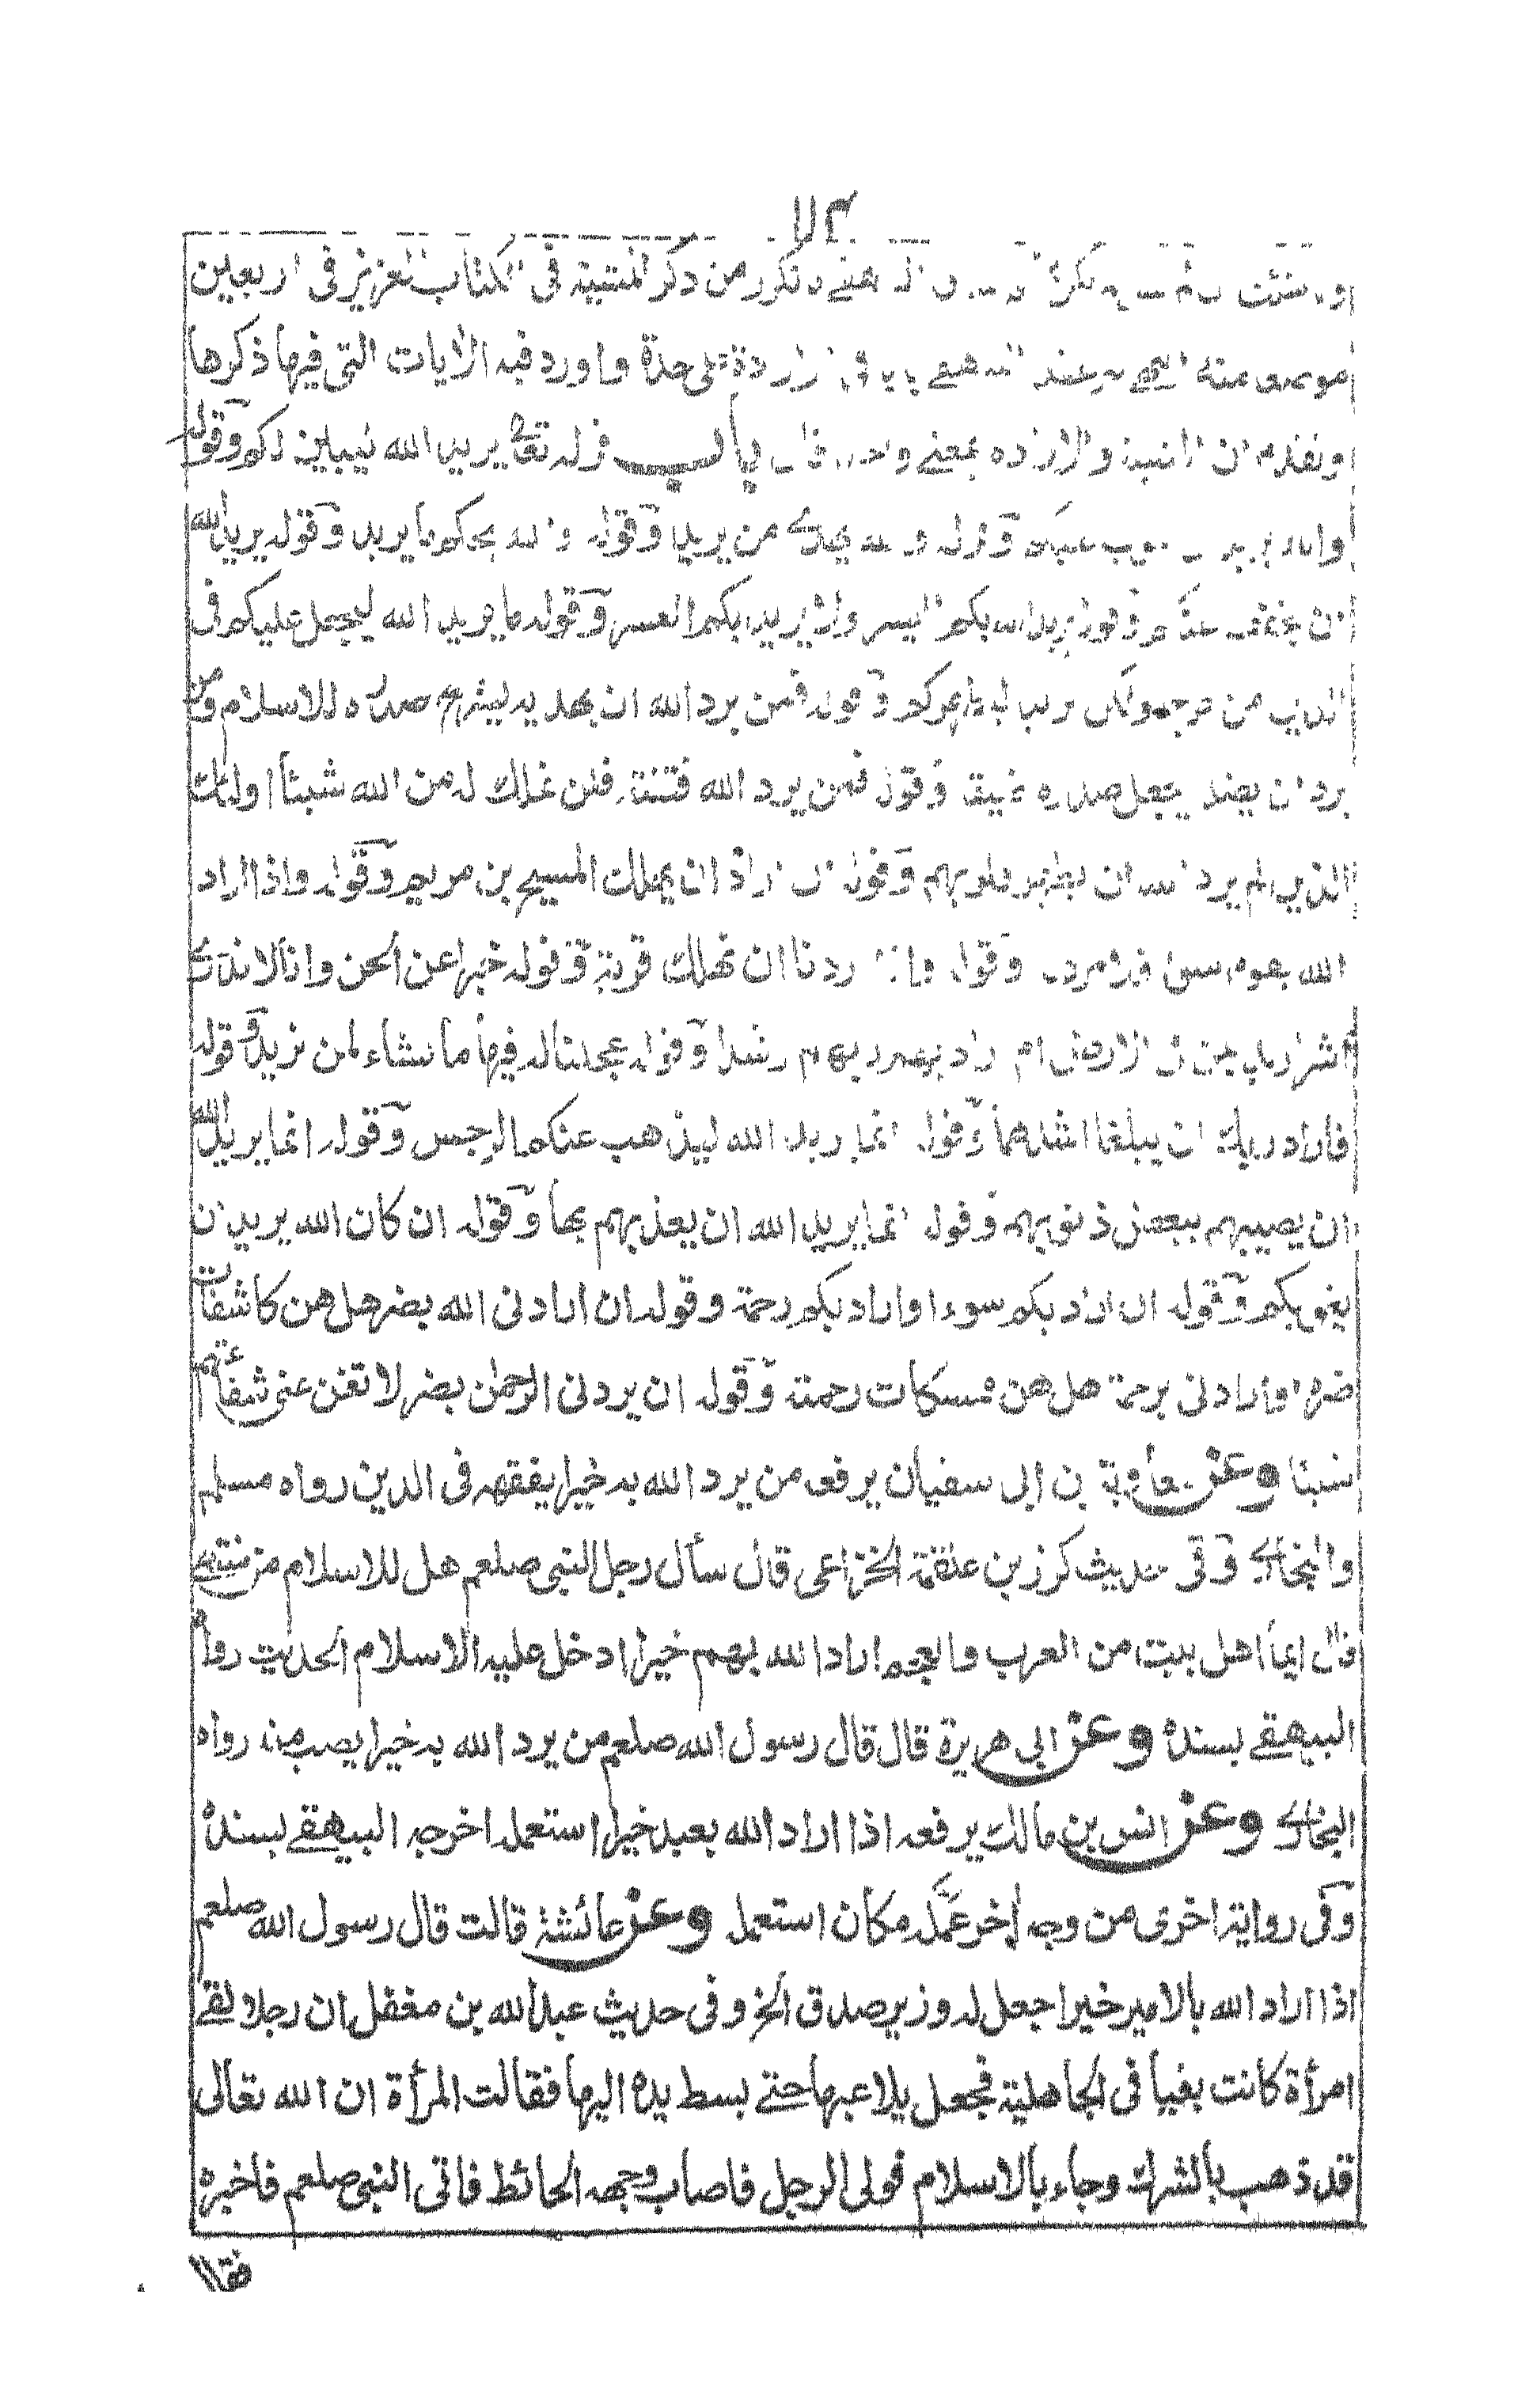 من ذكر المشيئة في الكتاب العزيز في اربعين
موضعا منه على حدة وما ورد فيه الايات التى فيها ذكرها
وتقدم ان بمعنے باب قوله تعالى يريد الله ليبين لكم وقوله
والله يريد من يريد وقوله و الله يحكم ما يريد وقوله يريد الله
ان يخفف عنكم وقوله يريد الله بكم اليسر ولا يريد بكم العسر وقوله ما يريد الله ليجعل عليكم فى
الدين من حرج ولكن يريد ليطهركم وقوله فمن يرد الله ان يهديه ليشرح صدره للاسلام ومن
يرد ان يضله يجعل صدره ضيقا وقوله فمن يرد الله فتنته فلن تملك له من الله شيئا اولئك
الذين لم يرد الله ان يطهر قلوبهم وقوله ان اراد ان يهلك المسيح بن مريم وقوله واذا اراد
الله بقوم سوء فلا مرد له وقوله واذا اردنا ان نهلك قرية وقوله خبرا عن الجن وانا لا ندرى
اشر اريد بمن فى الارض ام اراد بهم ربهم رشدا وقوله عجلنا له فيها ما نشاء لمن نريد وقوله
فاراد ربك ان يبلغا اشدهما وقوله انما يريد الله ليذهب عنكم الرجس وقوله انما يريد الله
ان يصيبهم ببعض ذنوبهم وقوله انما يريد الله ان يعذبهم بها وقوله ان كان الله يريد ان
يغويكم وقوله ان اراد بكم سوءا واراد بكم رحمة وقوله ان ارادنى الله بضر هل هن كاشفات
ضره او ارادنى برحمة هل هن ممسكات رحمته وقوله ان يردنى الرحمن بضر لا تغن عنى شفاعتهم
شيئا وعن معاوية بن ابى سفيان يرفعه من يرد الله به خيرا يفقهه فى الدين رواه مسلم
والبخارى وفى حديث كرز بن علقمة الخزاعى قال سأل رجل النبى صلعم هل للاسلام من منتهى
قال ايما اهل بيت من العرب والعجم اراد الله بهم خيرا ادخل عليه الاسلام الحديث رواه
البيهقے بسنده وعن ابى هريرة قال قال رسول الله صلعم من يرد الله به خيرا يصب منه رواه
البخارى وعن انس بن مالك يرفعه اذا اراد الله بعبد خيرا استعمله اخرجه البيهقے بسنده
وفى رواية اخرى من وجه اخر عمله مكان استعمل وعن عائشة قالت قال رسول الله صلعم
اذا اراد الله بالامير خيرا جعل له وزير صدق الخ وفى حديث عبد الله بن مغفل ان رجلا لقے
امرأة كانت بغيا فى الجاهلية فجعل يلاعبها حتے بسط يده اليها فقالت المرأة ان الله تعالى
قد ذهب بالشرك وجاء بالاسلام فولى الرجل فاصاب وجهه الحائط فاتى النبى صلعم فاخبره
فقال